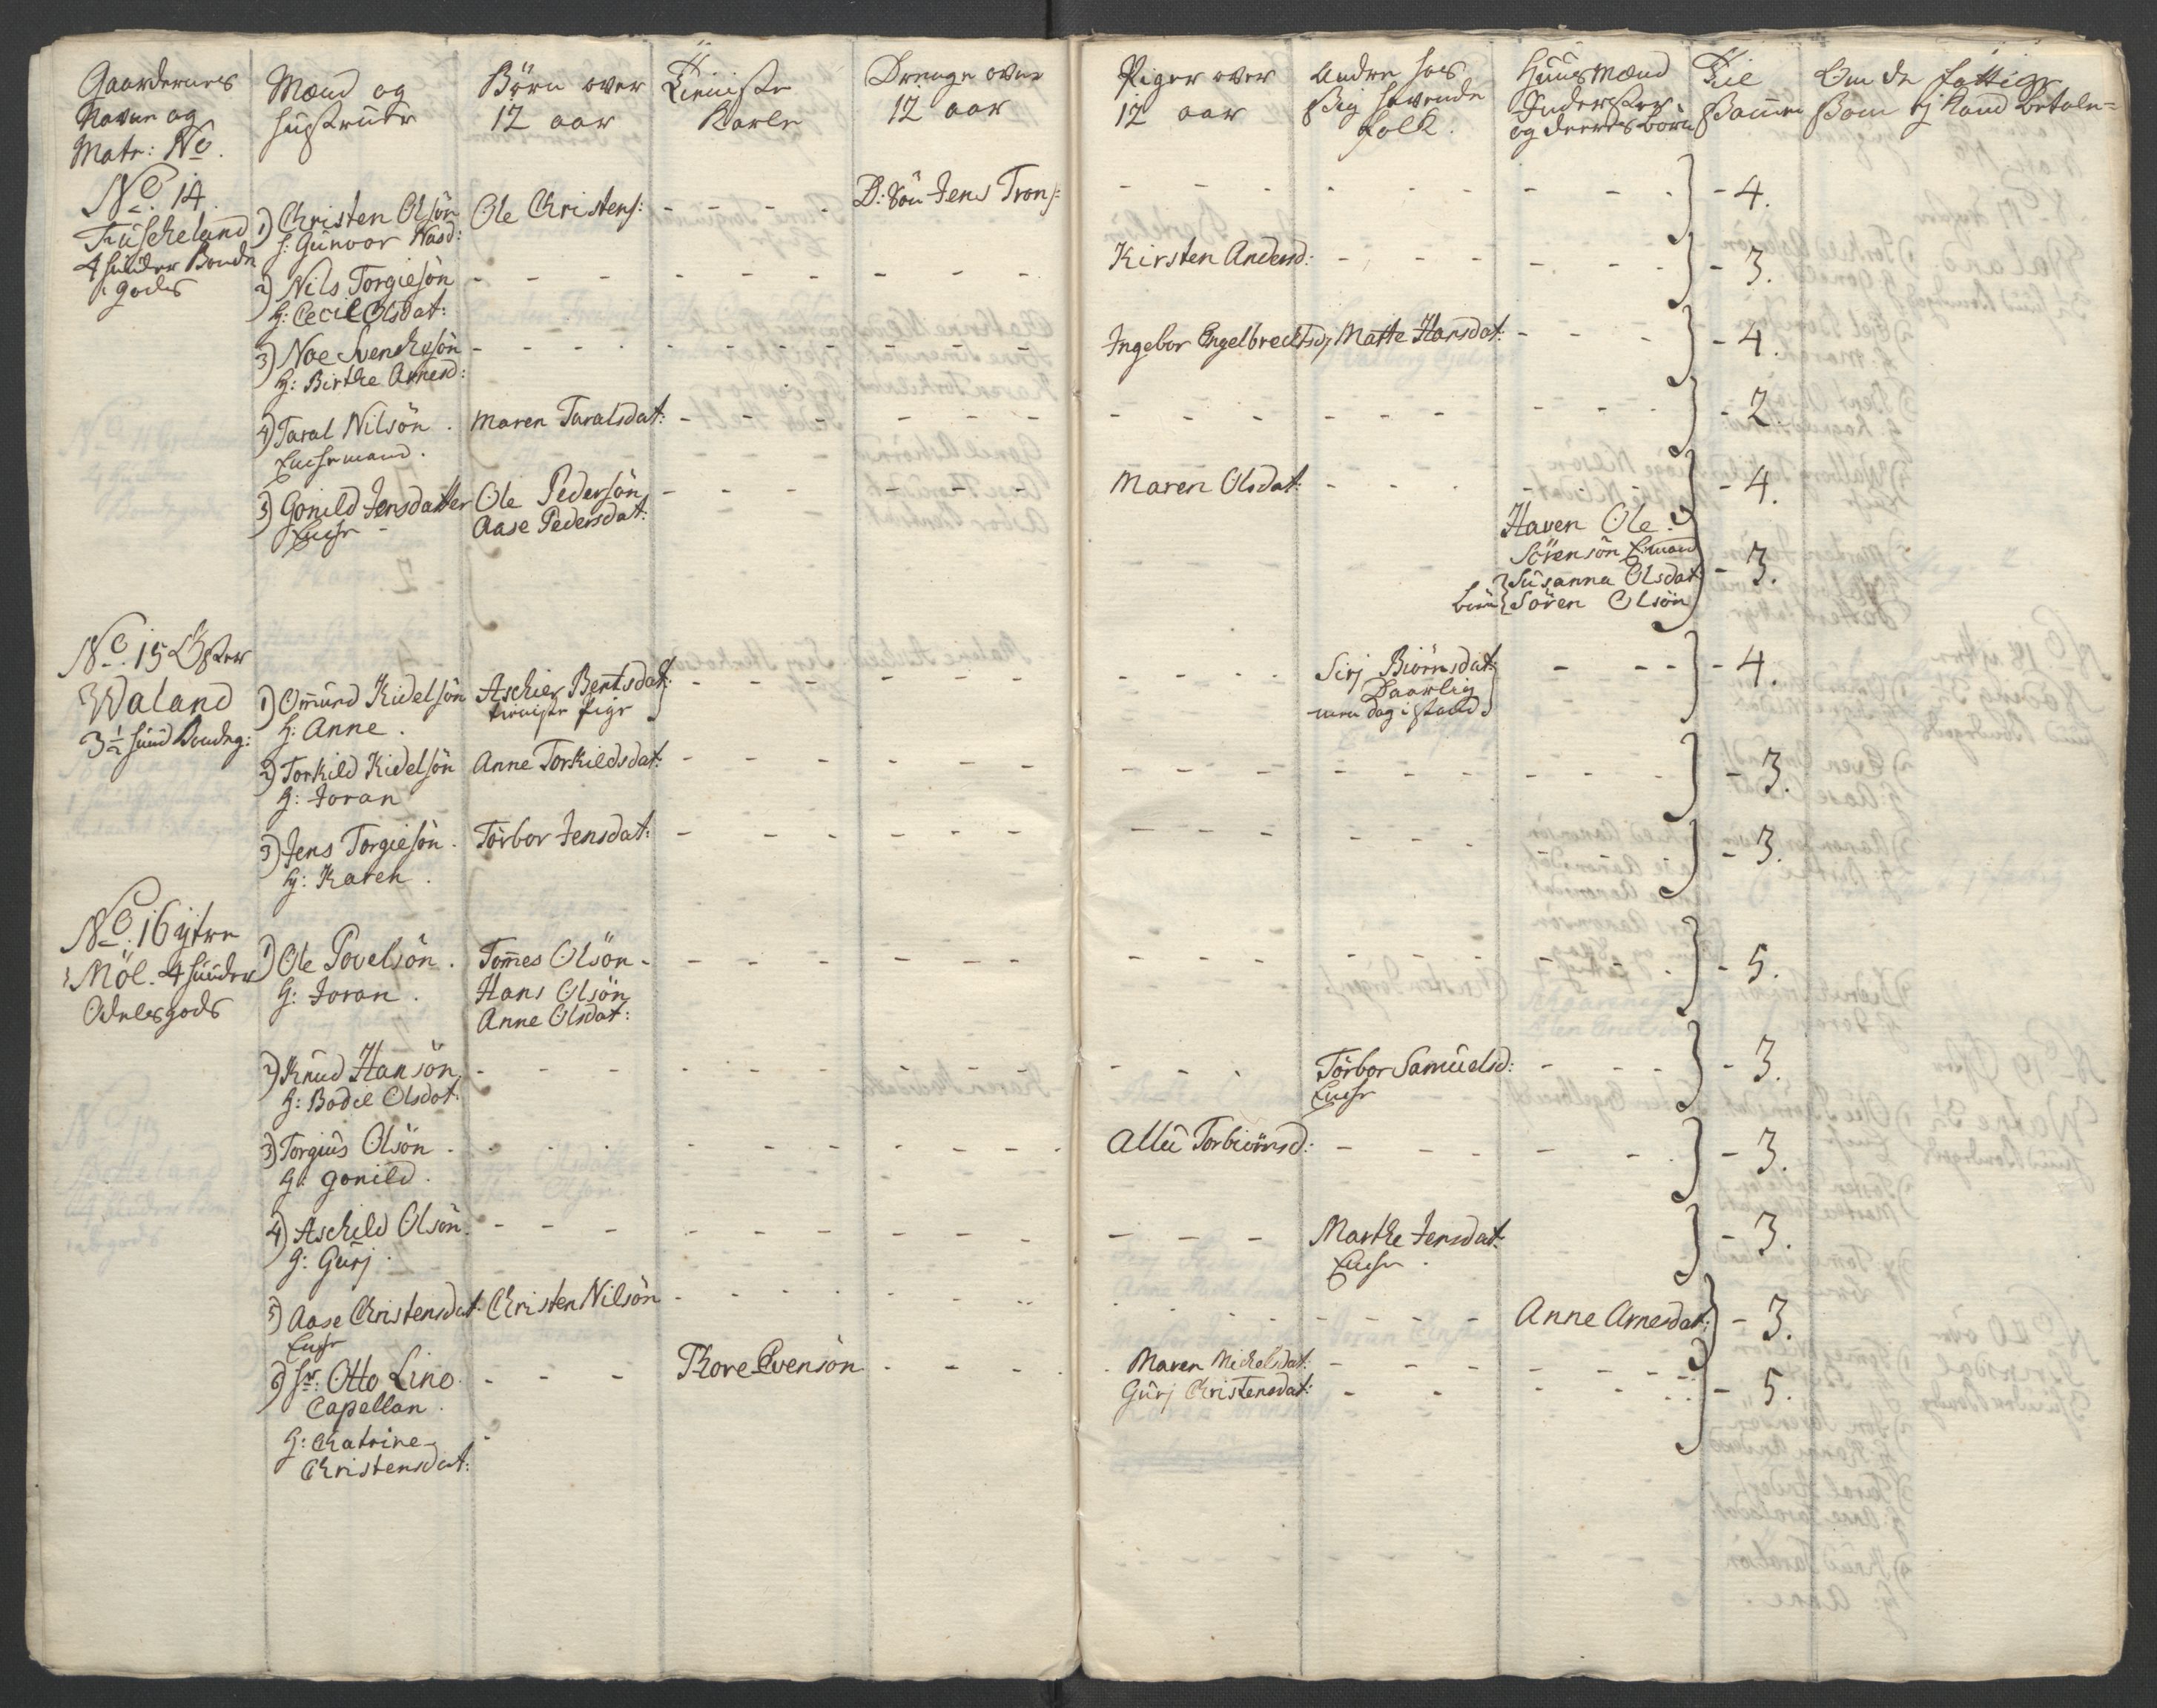 Gaardernes
Navne og
Matr: No.
Mænd og
Hustruer
Börn over
12 aar
Tieniste
Karle
Drenge over
12 aar
Piger over
12 aar
Andre hos
Sig havende
folk.
Huusmænd
Inderster
og deeres börn
Til
Sammen
Om de fattige
Som ej kand betale
No. 14.
4 huder Bonde
gods
1) Christen Olsön
h: Gunvor Aasd:
Ole Christens:
D: Sön Jens Trons:
- 4.
2) Nils Torgiesön
H: Cecil Olsdat:
Kirsten Andersd:
- 3.
3) Noe Svenchesön
H: Birthe Arnesd:
Ingebor Engelbrechtsd:
Matte Hansdat:
- 4.
4) Taral Nilsön
Enchemand.
Maren Taralsdat:
- 2.
5) Gonild Jensdatter
Enche
Ole Pedersön
Aase Pedersdat:
Maren Olsdat:
- 4.
Haven Ole
Sörensön E:mand
Susanna Olsdat:
börn Sören Olsön
- 3.
No. 15 Öster
Waland
3½ huud Bondeg:
1) Omund Kidelsön
H: Anne.
Aschier Bentsdat:
tieniste pige
Sirj Biörnsdat:
Daarlig
men dog i stand
- 4.
2) Torkild Kidelsön
H: Joran
Anne Torkildsdat:
- 3.
3) Jens Torgiesön.
H: Karen.
Törbor Jensdat:
- 3.
No. 16 ytre
Möl. 4 huuder
Odelsgods
1) Ole Povelsön.
H: Joran.
Tommes Olsön
Hans Olsön
Anne Olsdat:
- 5.
2) Knud Hansön
H: Bodil Olsdat:
Törbor Samuelsd:
Enche
- 3.
3) Torgius Olsön.
H: Gonild.
Allu Torbiörnsd:
- 3.
4) Aschild Olsön.
H: Gurj.
Marthe Jensdat:
Enche.
- 3.
5) Aase Christensdat:
Enche
Christen Nilsön
Anne Arnesdat:
- 3.
6) Hr: Otto Lino
Capellan.
H: Chatrine
Christensdat:
Thore Evensön
Maren Michelsdat:
Gurj Christensdat:
- 5.